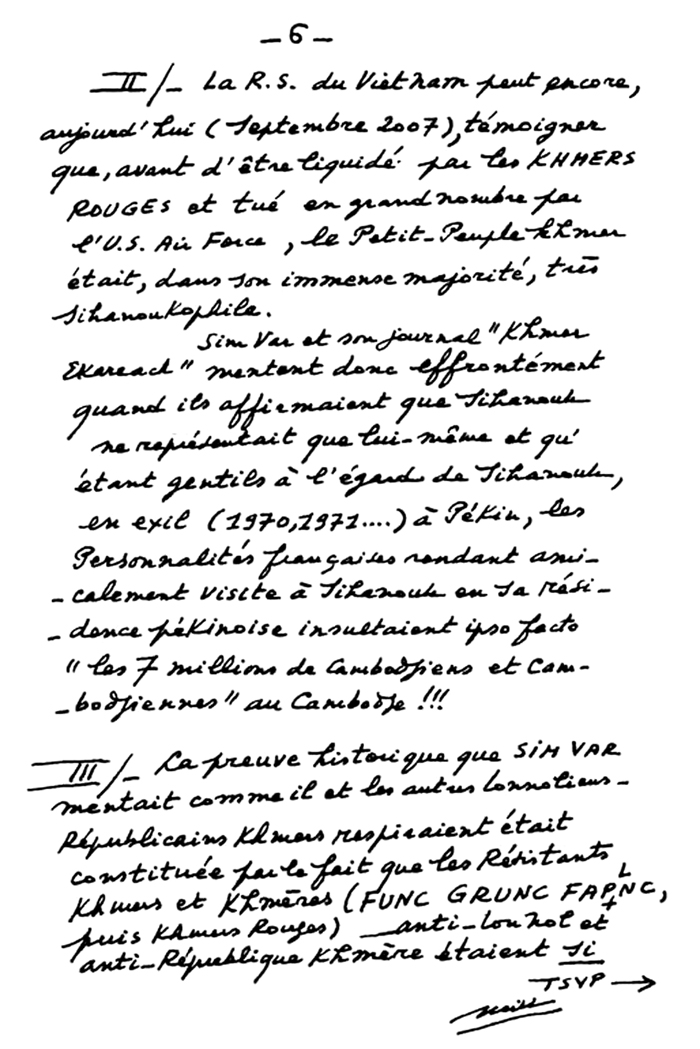 _ 6 _
II/_ La R.S. du Vietnam peut encore,
aujourd'hui (Septembre 2007), témoigner
que, avant d'être liquidé par les KHMERS
ROUGES et tué en grand nombre par
l'U.S. Air Force, le Petit-Peuple khmer
était, dans son immense majorité, très
Sihanoukophile.
Sim Var et son journal "Khmer
Ekareach" mentent donc effrontément
quand ils affirmaient que Sihanouk
ne représentait que lui-même et qu'
étant gentils à l'égard de Sihanouk,
en exil (1970,1971....) à Pékin, les
Personnalités françaises rendant ami-
-calement visite à Sihanouk en sa rési-
-dence pékinoise insultaient ipso facto
"les 7 millions de Cambodgiens et Cam-
-bodgiennes" au Cambodge !!!
III/_ La preuve historique que SIM VAR
mentait comme il et les autres lonnoliens-
Républicains Khmers respiraient était
constituée par le fait que les Résistants
Khmers et Khmères (FUNC GRUNC FAPLNC,
puis Khmers Rouges) _ anti-Lon Nol et
anti-République Khmère étaient si
TSVP →